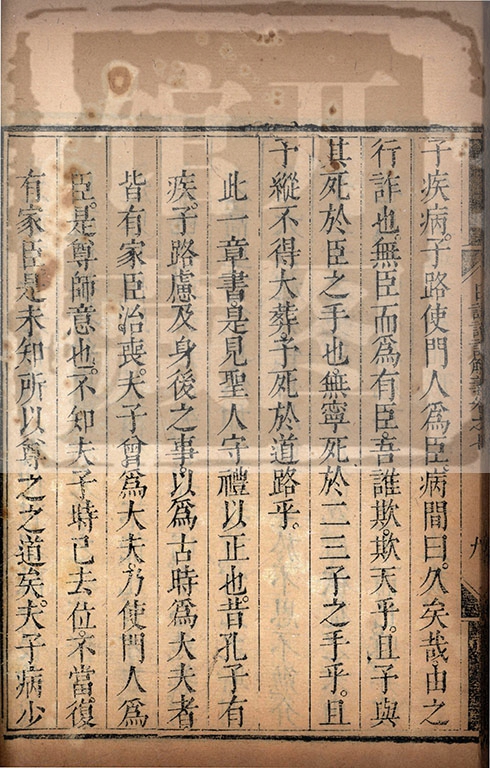 子疾病。子路使門人爲臣。病間曰。久矣哉。由之
行詐也。無臣而爲有臣。吾誰欺。欺天乎。且予與
其死於臣之手也。無寧死於二三子之手乎。且
予縱不得大葬。予死於道路乎。
此一章書是見聖人守禮以正也。昔孔子有
疾。子路慮及身後之事。以爲古時爲大夫者
皆有家臣治喪。夫子曾爲大夫。乃使門人爲
臣。是尊師意也。不知夫子時已去位。不當復
有家臣。是未知所以尊之之道矣。夫子病少